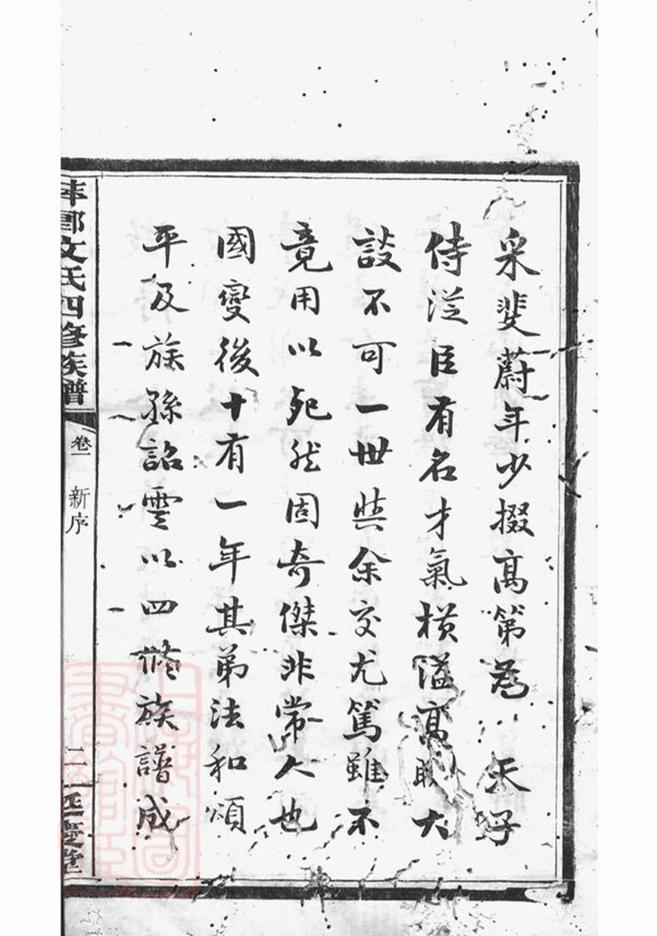 采斐蔚年少掇高第為 天子
侍從臣有名才氣橫溢高睨大
談不可一世與余交尤篤雖不
竟用以死然固奇傑非常人也
國變後十有一年其弟法和頌
平及族孫詔雲以四修族譜成
萍鄉文氏四修族譜
卷一 新序
二
慶堂